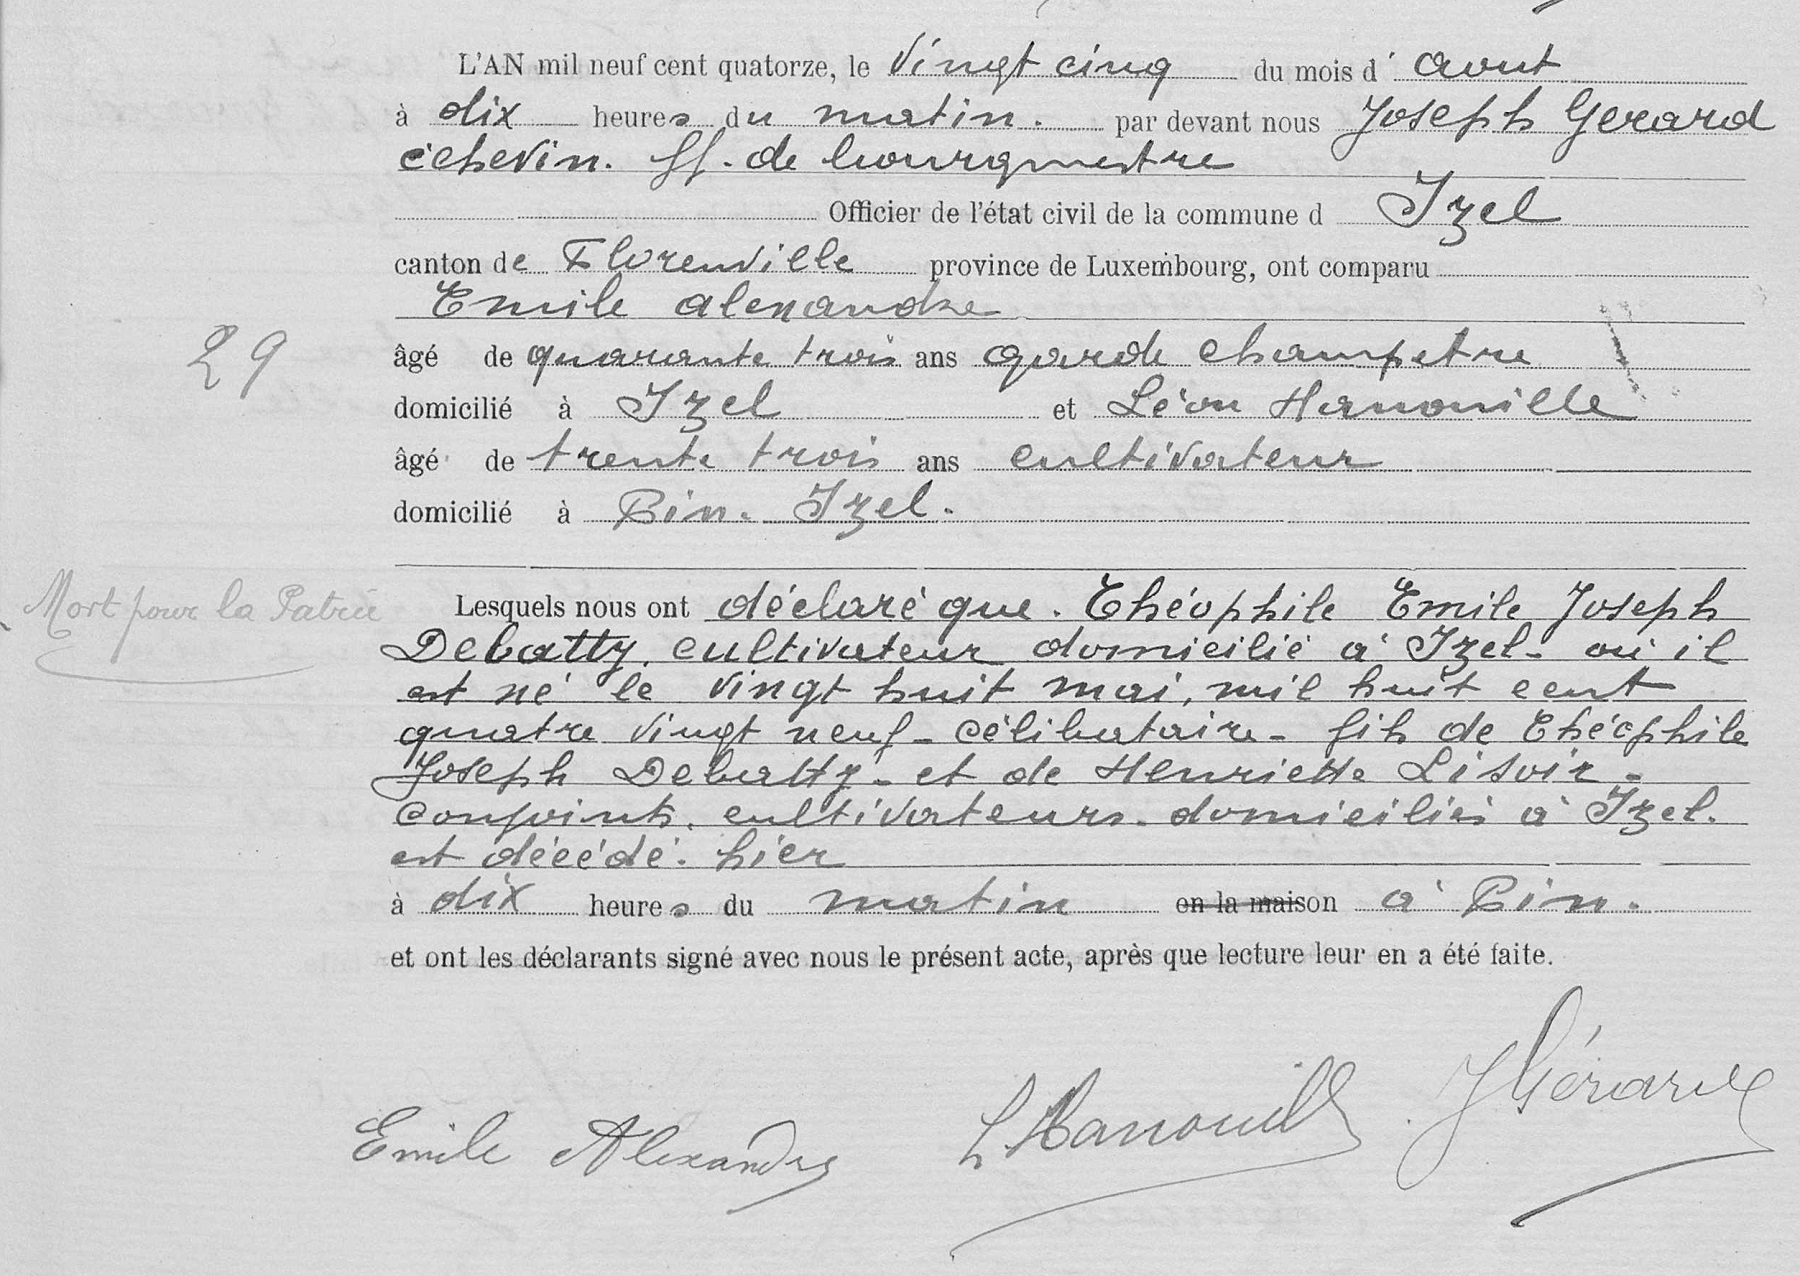 L'AN mil neuf cent quatorze, le vingt cinq du mois d' aout
à dix heures du matin. par devant nous Joseph Gerard
échevin. ff. de bourgmestre
Officier de l'état civil de la commune d Izel
canton de Florenville province de Luxembourg, ont comparu
Emile alexandre
29
âgé de quarante trois ans garde champetre
domicilié à Izel et Léon Hanouille
âgé de trente trois ans cultivateur
domicilié à Pin. Izel.
Mort pour la Patrie
Lesquels nous ont déclaré que. Théophile Emile Joseph
Debatty, cultivateur domicilié à Izel - où il
est né le vingt huit mai, mil huit cent
quatre vingt neuf - célibataire - fils de Théophile
Joseph Debatty - et de Henriette Lisoir -
conjoints, cultivateurs - domiciliés à Izel.
est décédé. hier
à dix heures du matin en la maison à Pin.
et ont les déclarants signé avec nous le présent acte, après que lecture leur en a été faite.
Emile Alexandre L Hanouille J Gérard